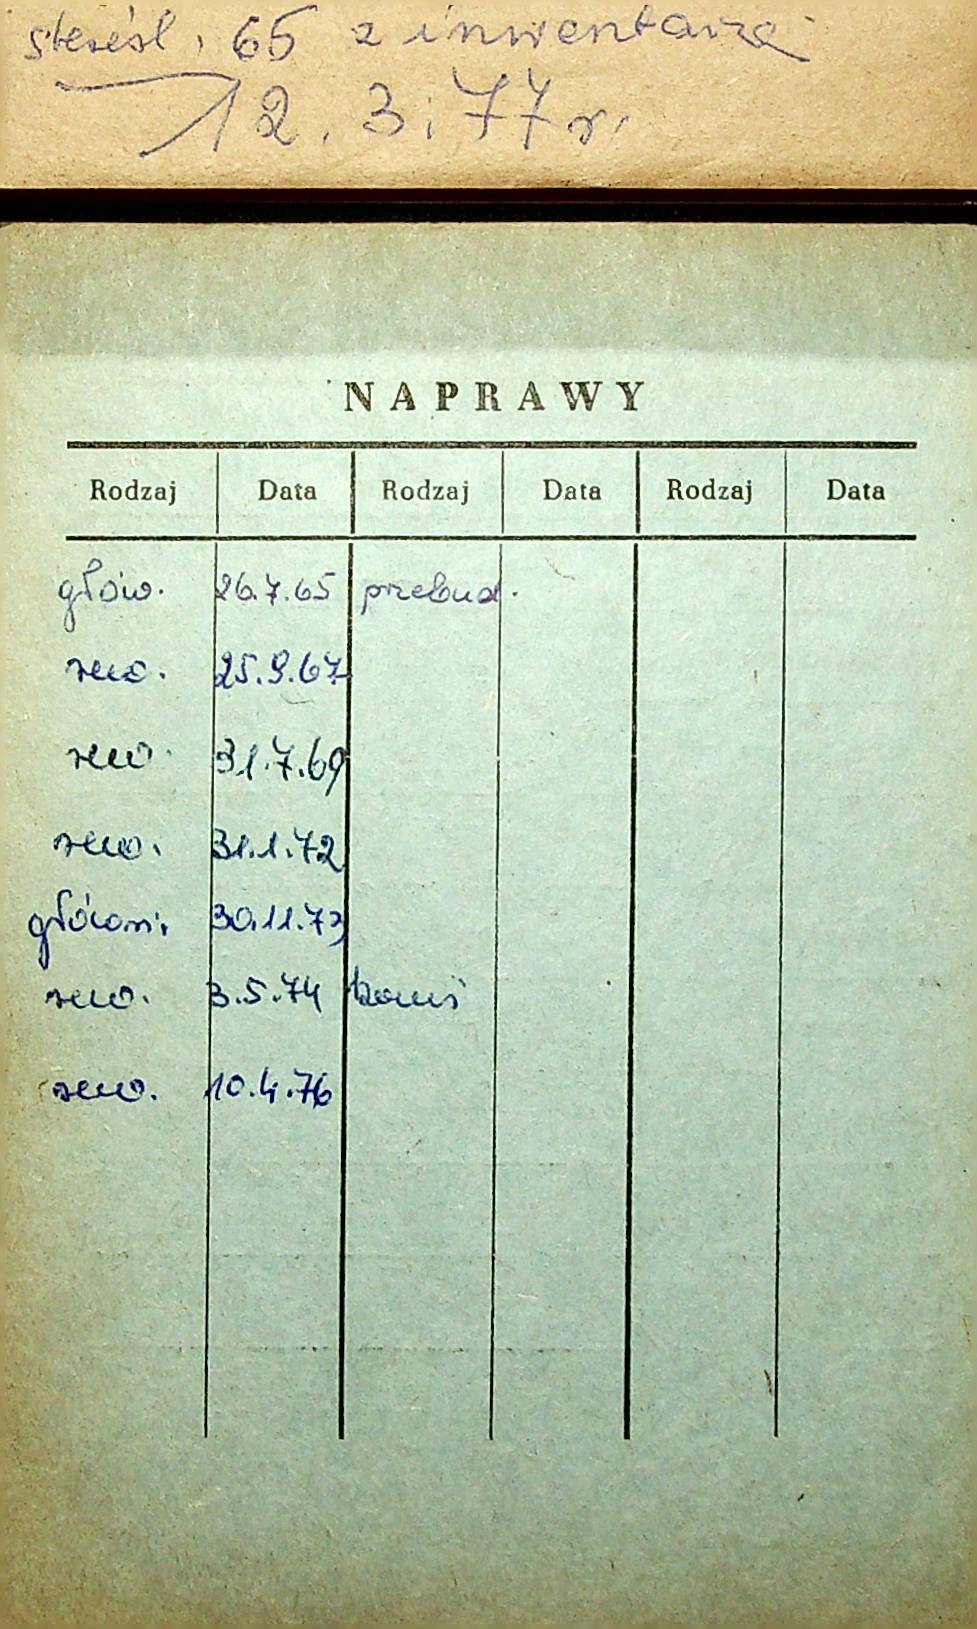 65 z inwentarza
12.3.77 r.
NAPRAWY
Rodzaj Data Rodzaj Data Rodzaj Data
głów. 26.7.65 przebud.
rew. 25.9.67
rew. 31.7.69
rew. 31.1.72
główn. 30.11.73
rew. 3.5.74
rew. 10.4.76